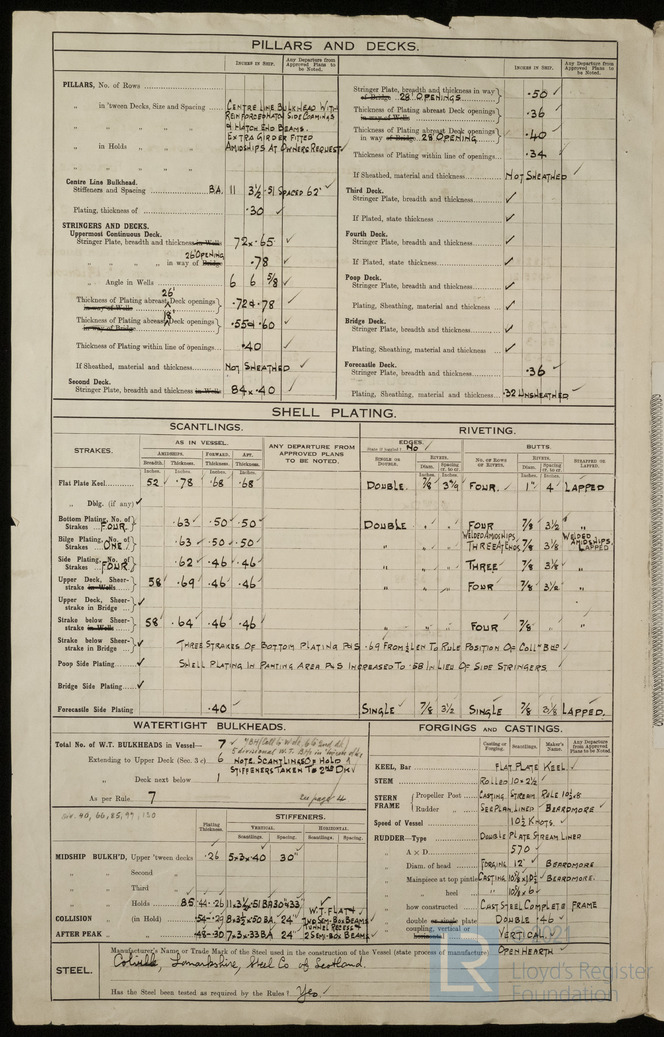 PILLARS AND DECKS.
INCHES IN SHIP.
Any Departure from Approved Plans to be Noted.
PILLARS, No. of Rows
" in 'tween Decks, Size and Spacing CENTRE LINE BULKHEAD WITH
REINFORCED HATCH SIDE COAMINGS
& HATCH END BEAMS.
EXTRA GIRDER FITTED
" in Holds " " AMIDSHIPS AT OWNERS REQUEST ✓
Centre Line Bulkhead.
Stiffeners and Spacing BA. 11 3½ .51 SPACED 62" ✓
Plating, thickness of .30 ✓
STRINGERS AND DECKS.
Uppermost Continuous Deck.
Stringer Plate, breadth and thickness in Wells 72 x .65 ✓
" " " " in way of Bridge 26' OPENING .78 ✓
" Angle in Wells 6 6 5/8 ✓
Thickness of Plating abreast 26' Deck openings in way of Wells .72 & .78 ✓
Thickness of Plating abreast 18' Deck openings in way of Bridge .55 & .60 ✓
Thickness of Plating within line of openings .40 ✓
If Sheathed, material and thickness NOT SHEATHED ✓
Second Deck.
Stringer Plate, breadth and thickness in Wells 84 x .40 ✓
INCHES IN SHIP.
Any Departure from Approved Plans to be Noted.
Stringer Plate, breadth and thickness in way of Bridge 28' OPENINGS .50 ✓
Thickness of Plating abreast Deck openings in way of Wells .36 ✓
Thickness of Plating abreast Deck openings in way of Bridge 28' OPENING .40 ✓
Thickness of Plating within line of openings .34 ✓
If Sheathed, material and thickness NOT SHEATHED ✓
Third Deck.
Stringer Plate, breadth and thickness ✓
If Plated, state thickness ✓
Fourth Deck.
Stringer Plate, breadth and thickness ✓
If Plated, state thickness ✓
Poop Deck.
Stringer Plate, breadth and thickness ✓
Plating, Sheathing, material and thickness ✓
Bridge Deck.
Stringer Plate, breadth and thickness ✓
Plating, Sheathing, material and thickness ✓
Forecastle Deck.
Stringer Plate, breadth and thickness .36 ✓
Plating, Sheathing, material and thickness .32 UNSHEATHED ✓
SHELL PLATING.
SCANTLINGS. RIVETING.
STRAKES. AS IN VESSEL. ANY DEPARTURE FROM APPROVED PLANS TO BE NOTED. EDGES. No ✓ BUTTS.
AMIDSHIPS. FORWARD. AFT. SINGLE OR DOUBLE. RIVETS. No. OF ROWS OF RIVETS. RIVETS. STRAPPED OR LAPPED.
Breadth. Thickness. Thickness. Thickness. Diam. Spacing cr. to cr. Diam. Spacing cr. to cr.
Inches. Inches. Inches. Inches. Inches. Inches. Inches. Inches.
Flat Plate Keel 52 .78 .68 .68 DOUBLE. 7/8 FOUR. 1" 4" LAPPED
" Dblg. (if any) ✓
Bottom Plating, No. of Strakes FOUR. .63 .50 .50 DOUBLE " " FOUR 7/8 3½ "
Bilge Plating, No. of Strakes ONE .63 .50 .50 " " " WELDED AMIDSHIPS THREE AT ENDS 7/8 3⅛ WELDED AMIDSHIPS LAPPED
Side Plating, No. of Strakes FOUR .62 .46 .46 " " " THREE 7/8 3⅛ "
Upper Deck, Sheerstrake in Wells 58 .69 .46 .46 " " " FOUR 7/8 3½ "
Upper Deck, Sheerstrake in Bridge ✓
Strake below Sheerstrake in Wells 58 .64 .46 .46 " " " FOUR 7/8 "
Strake below Sheerstrake in Bridge ✓ THREE STRAKES OF BOTTOM PLATING P&S .69 FROM ¼ LEN TO RULE POSITION OF COLLN BHD
Poop Side Plating ✓ SHELL PLATING IN PANTING AREA P&S INCREASED TO .58 IN LIEU OF SIDE STRINGERS.
Bridge Side Plating ✓
Forecastle Side Plating .40 SINGLE 7/8 3½ SINGLE 7/8 3⅛ LAPPED.
WATERTIGHT BULKHEADS.
Total No. of W.T. BULKHEADS in Vessel— 7 ✓
Extending to Upper Deck (Sec. 3 c) 6 NOTE. SCANTLINGS OF HOLD
STIFFENERS TAKEN TO 2ND DK ✓
" Deck next below 1
As per Rule. 7 see page 4
Plating Thickness. STIFFENERS.
VERTICAL. HORIZONTAL.
Scantlings. Spacing. Scantlings. Spacing.
MIDSHIP BULKH'D, Upper 'tween decks .26 5x3x.40 30"
" " Second "
" " Third "
" " Holds
COLLISION " (in Hold) 24"
AFTER PEAK " 7x3x.33 BA 24" 2 SEMI-BOX BEAMS
FORGINGS AND CASTINGS.
Casting or Forging. Scantlings. Maker's Name. Any Departure from Approved Plans to be Noted.
KEEL, Bar FLAT PLATE KEEL ✓
STEM ROLLED 10 x 2½ ✓
STERN FRAME Propeller Post CASTING STREAM RULE
Rudder " SEE PLAN LINED BEARDMORE
Speed of Vessel 10½ KNOTS. ✓
RUDDER—Type DOUBLE PLATE STREAM LINED
" A x D 570 ✓
" Diam. of head FORGING 12" ✓ BEARDMORE.
" Mainpiece at top pintle CASTING BEARDMORE.
" " heel "
" how constructed CAST STEEL COMPLETE FRAME
" double or single plate DOUBLE .46 ✓
" coupling, vertical or horizontal VERTICAL ✓
STEEL.
Manufacturer's Name or Trade Mark of the Steel used in the construction of the Vessel (state process of manufacture) OPEN HEARTH
Colvilles, Lanarkshire, Steel Co of Scotland.
Has the Steel been tested as required by the Rules? Yes ✓
LR
© 2021
Lloyd's Register
Foundation